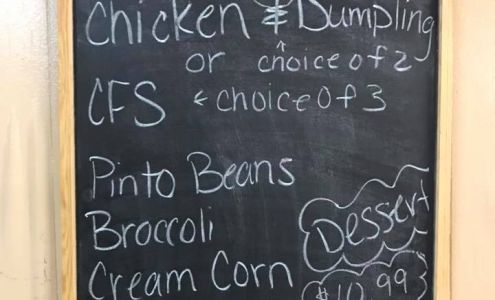 Chicken & Dumpling
or choice of 2
CFS choice of 3
Pinto Beans
Broccoli
Dessert
Cream Corn
$10.99